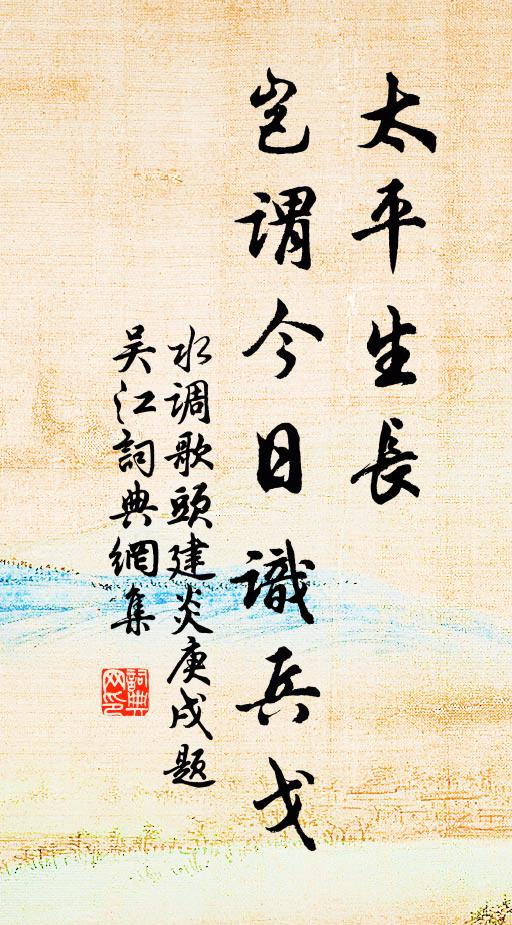 太平生長
岂謂今日識兵戈
水调歌頭建炎庚戌题
吴江詞典網集
詞典网印